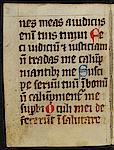 nes meas a iudiciis
eni tuis timui Fe
ci iudiciū et iusticiam
nō tradas me calūp
niantibꝰ me Susci
pe seruū tuū ī bonū
nō calūpnient me
supbi Oculi mei de
fecerūt ī salutare